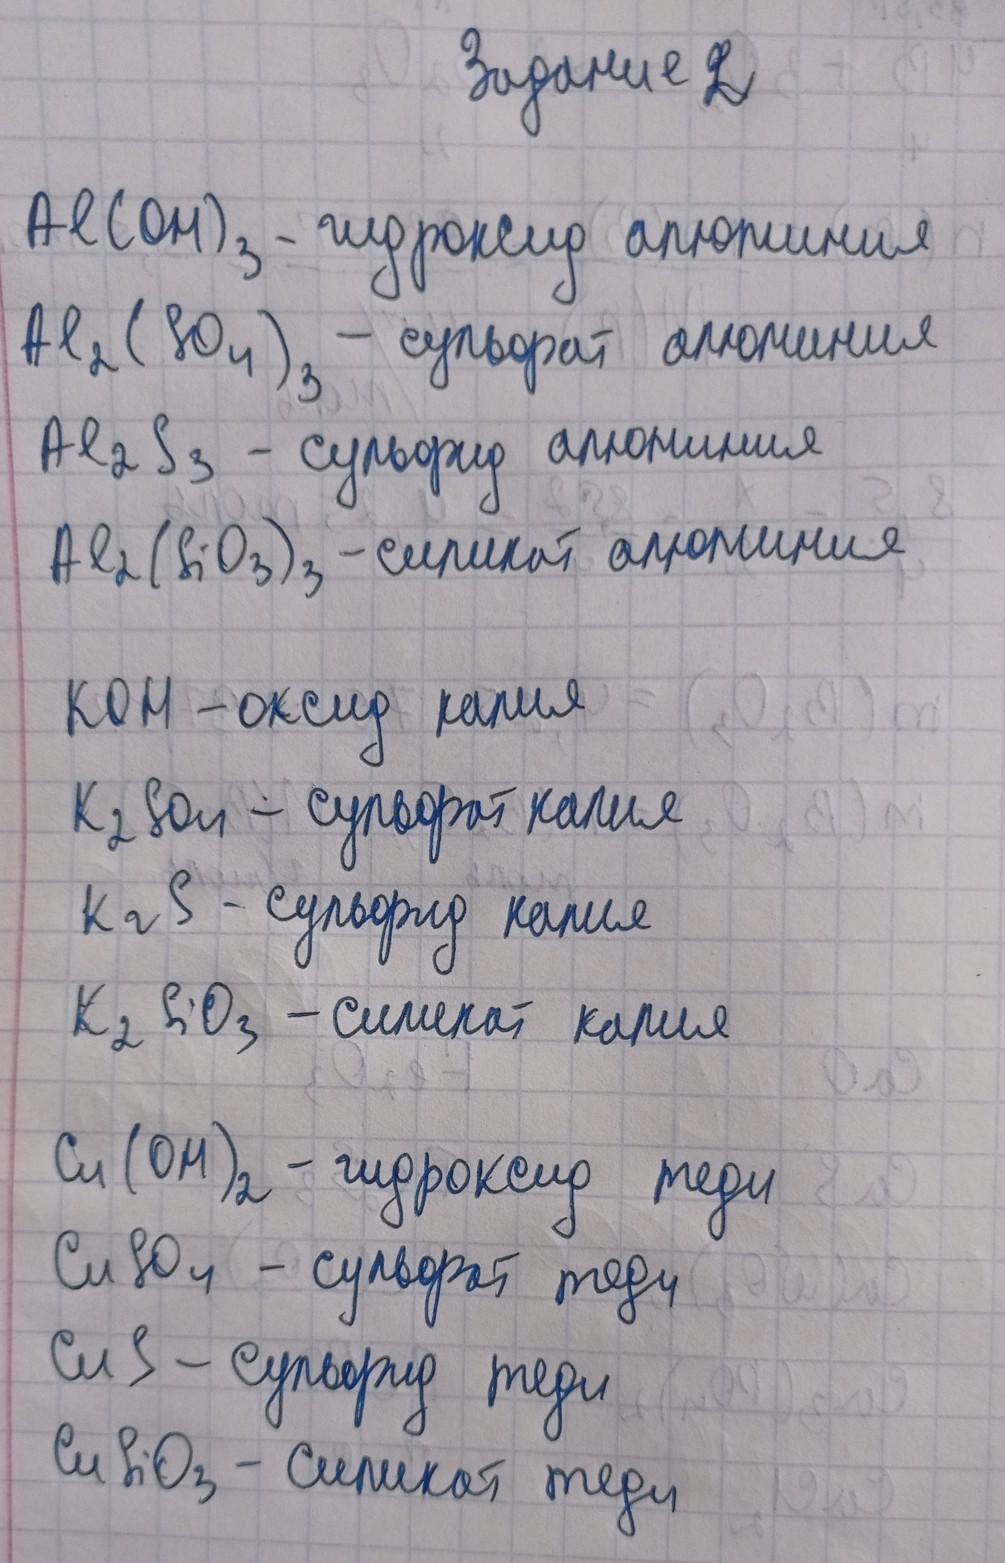 Задание 2
Al(OH)₃ - гидроксид алюминия
Al₂(SO₄)₃ - сульфат алюминия
Al₂S₃ - сульфид алюминия
Al₂(SiO₃)₃ - силикат алюминия
KOH - оксид калия
K₂SO₄ - сульфат калия
K₂S - сульфид калия
K₂SiO₃ - силикат калия
Cu(OH)₂ - гидроксид меди
CuSO₄ - сульфат меди
CuS - сульфид меди
CuSiO₃ - силикат меди